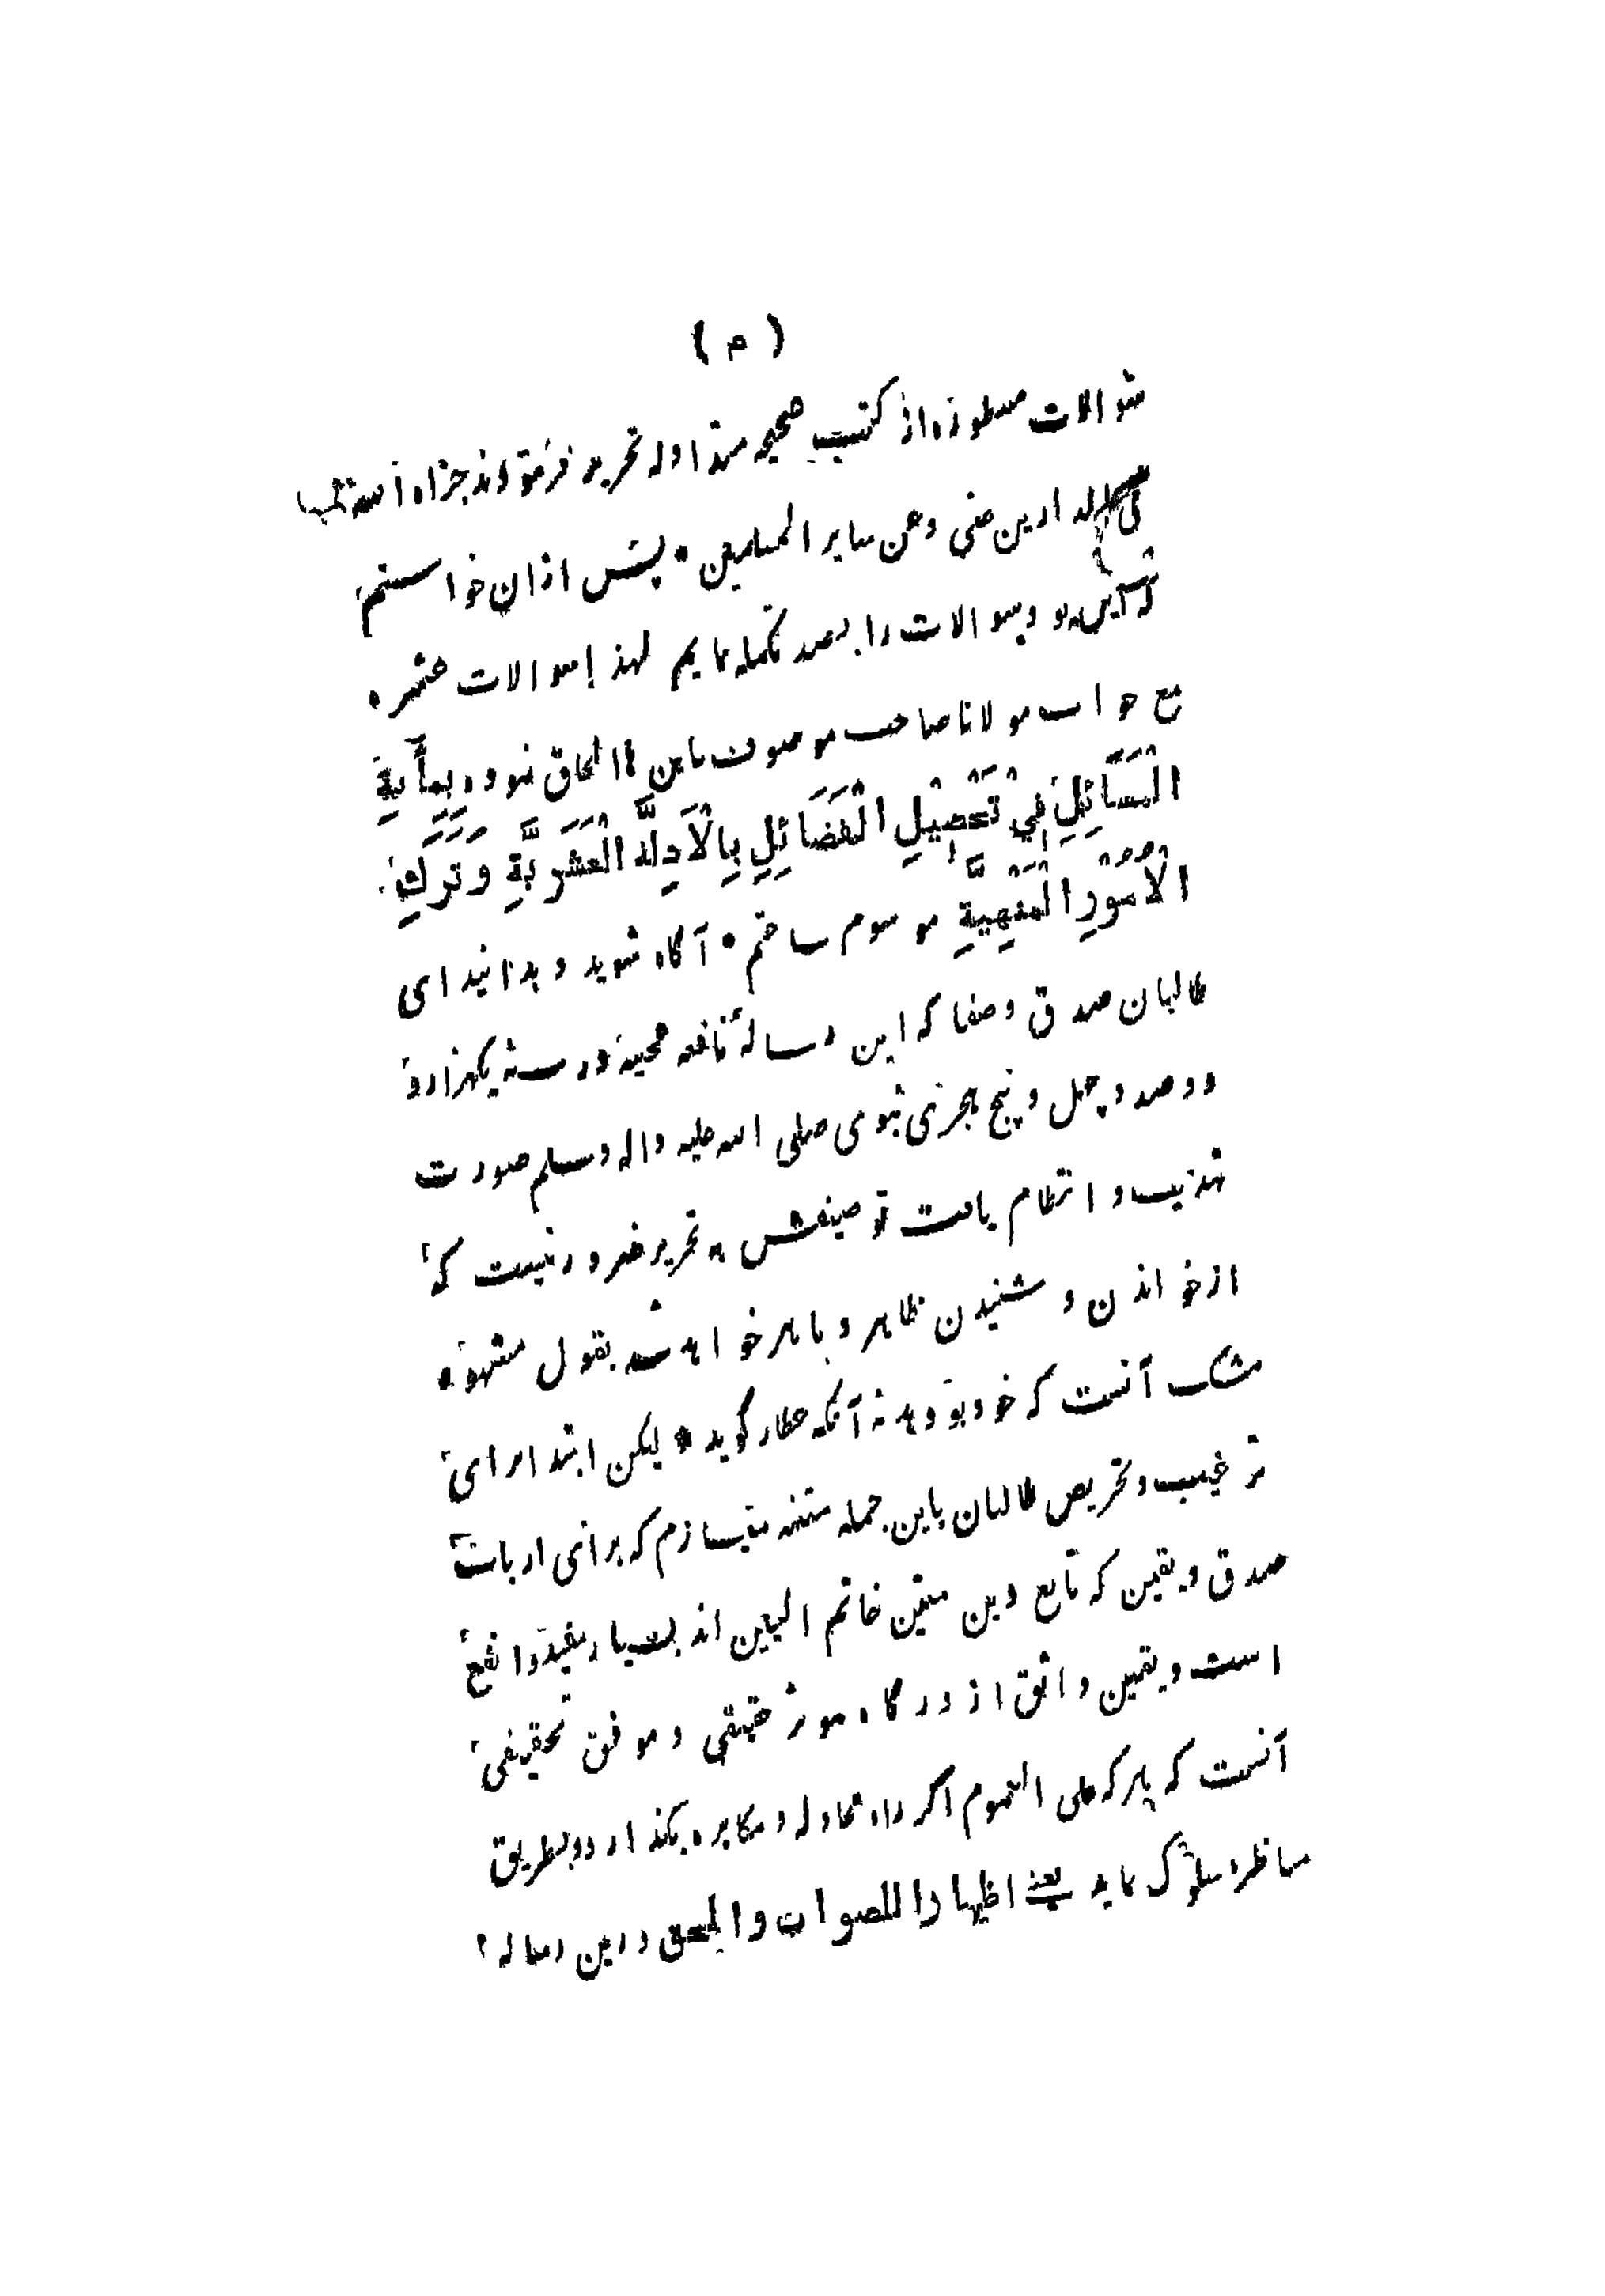 ( م )
سوالات مسطوره از کتب صحیحه متداوله تحریر فرموده اند جزاه الله
فی الدارین عنی وعن سایر المسلمین * پس ازان خواستم
که این سوالات را بصد تکمله نمایم لهذا سوالات عشره
مع جواب مولانا صاحب موصوف باین ها الحاق نموده بِمِأَیةِ
الْمَسَآئِلِ فِيْ تَحْصِيْلِ الْفَضَائِلِ بِالْاَدِلَّةِ الْشَرْعِيَّةِ وَتَرْكِ
الْاُمُوْرِ الْمَنْهِيَّةِ موسوم ساختم * آگاه شوید و بدانید ای
طالبان صدق و صفا که این رسالهٔ نافعه در سنه یکهزار و
دو صد و چهل و پنج هجری نبوی صلی الله علیه واله وسلم صورت
تهذیب و انتظام یافت توصیفش به تحریر ضرور نیست که
از خواندن و شنیدن ظاهر و باهر خواهد شد بقول مشهور *
مشک آنست که خود ببوید نه آنکه عطار گوید * لیکن ابتدا برای
ترغیب و تحریص طالبان باین جمله متنبه میسازم که برای ارباب
صدق و یقین که تابع دین متین خاتم النبیین اند بسیار مفید و انفع
است و یقین واثق از درگاه موثر حقیقی و موفق تحقیقی
آنست که هر که علی العموم اگر راه مجادله و مکابره بگذارد و بطریق
مناظره سلوک نماید یعنے اظهارا للصواب والحق درین رساله